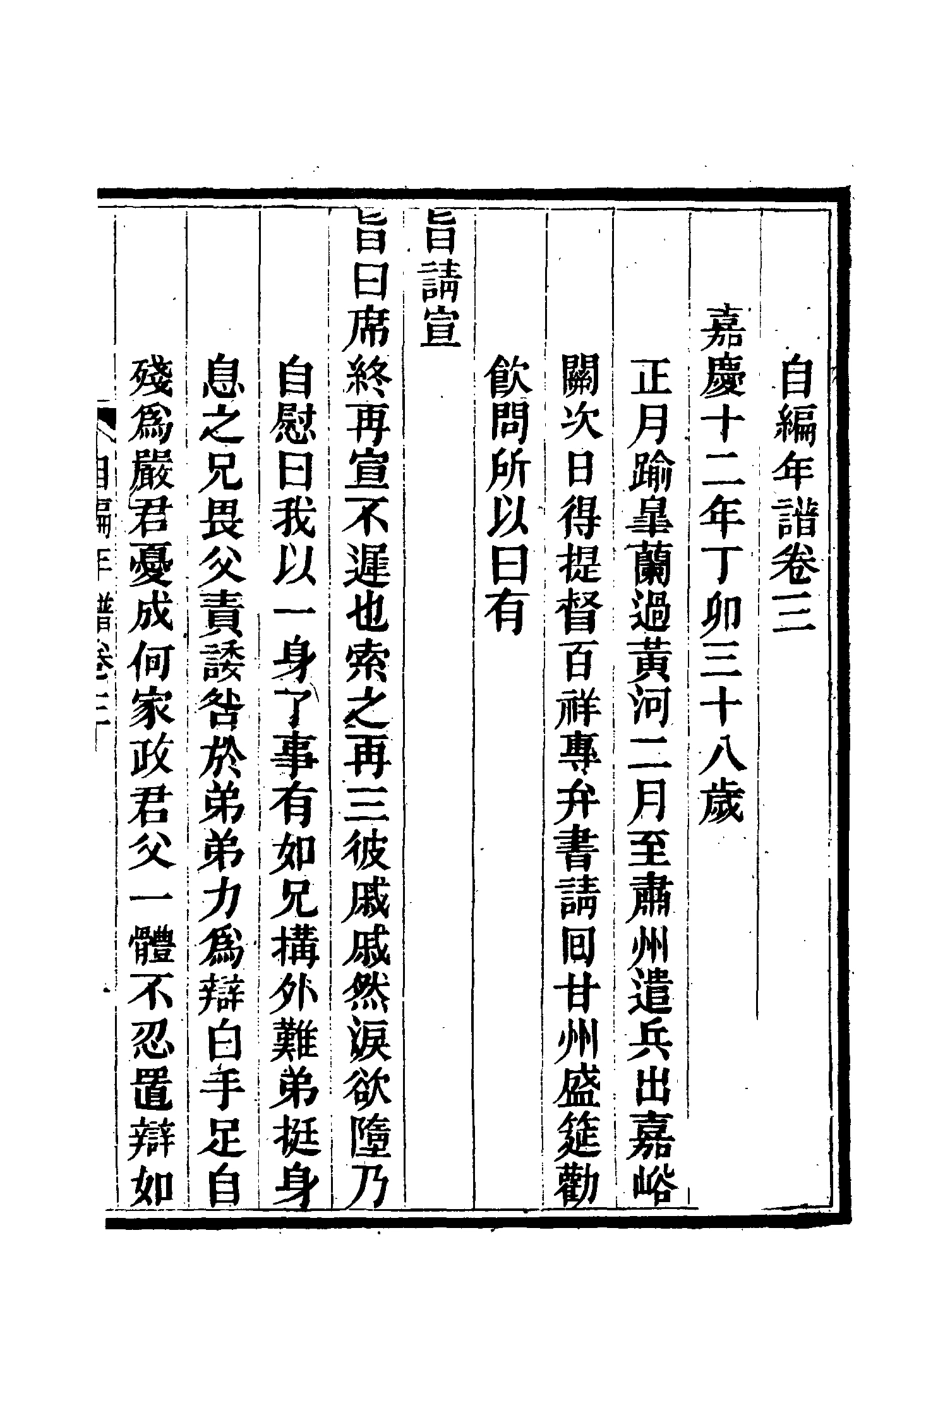 自編年譜卷三
嘉慶十二年丁卯三十八歲
正月踰皐蘭過黃河二月至肅州遣兵出嘉峪
關次日得提督百祥專弁書請囘甘州盛筵勸
飮問所以曰有
旨請宣
旨曰席終再宣不遲也索之再三彼戚戚然淚欲墮乃
自慰曰我以一身了事有如兄搆外難弟挺身
息之兄畏父責諉咎於弟弟力爲辯白手足自
殘爲嚴君憂成何家政君父一體不忍置辯如
自編年譜卷三
一